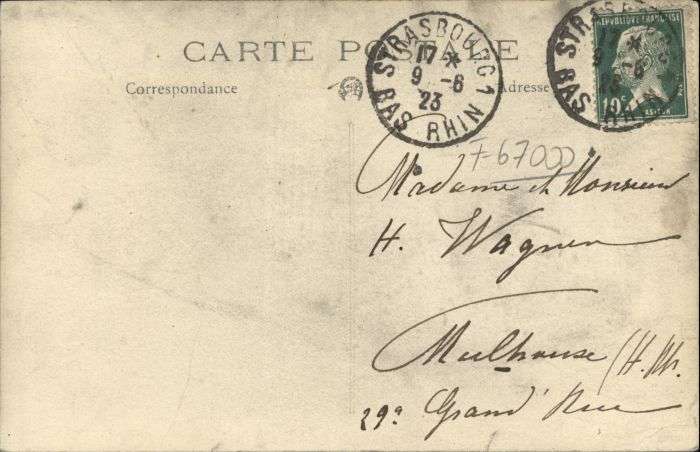 CARTE POSTALE
Correspondance
Adresse
STRASBOURG 1
17 *
9 - 6
23
BAS RHIN
STRASB
17 *
9 - 6
23
BAS RHIN
REPVBLIQVE FRANÇAISE
10c
F-67000
Madame et Monsieur
H. Wagner
Mulhouse (H. Rh.
29a Grand' Rue